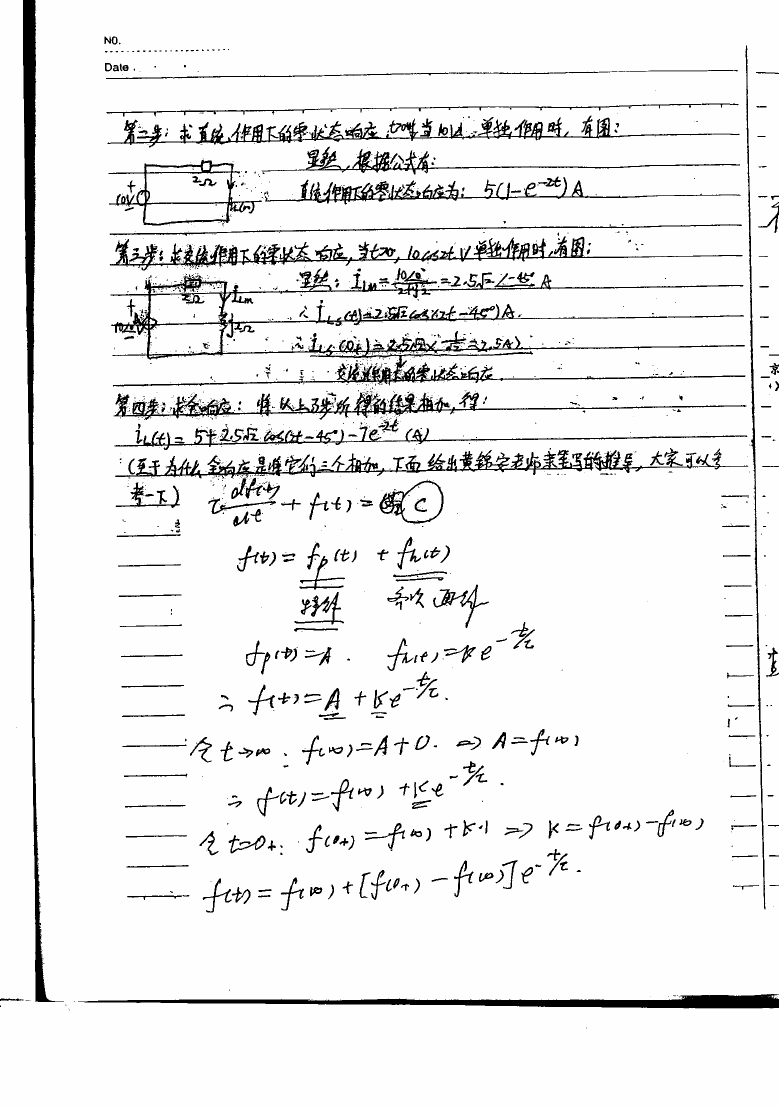 NO.
Date . · ·
第二步：求直流作用下的零状态响应，t>0时当10V 单独作用时，有图：
显然，根据公式有：
直流作用下的零状态响应为：5(1-e^{-2t})A
2Ω
10V
+
第三步：求交流作用下的零状态响应，当t>0，10cos2t V单独作用时，有图：
显然：İLm = 10∠0°/2+j2 = 2.5√2∠-45° A
∴ iLs(t)=2.5√2cos(2t-45°)A.
∴ iLs(0+)=2.5√2×1/√2=2.5A)
2Ω
İLm
j2Ω
+
交流 的零状态响应.
第四步：求全响应：将以上3步所得的结果相加，得：
iL(t)= 5+2.5√2 cos(2t-45°)-7e^{-2t} (A)
(至于为什么全响应是将它们三个相加，下面给出黄锦安老师亲笔写的推导，大家可以参
考一下)
τ df(t)/dt + f(t) = C
f(t) = fp(t) + fh(t)
特解 齐次通解
fp(t)=A. fh(t)=Ke^{-t/τ}
∴ f(t)=A+Ke^{-t/τ}.
令t→∞: f(∞)=A+0. ⇒ A=f(∞)
∴ f(t)=f(∞)+Ke^{-t/τ}.
令t=0+: f(0+)=f(∞)+K·1 ⇒ K=f(0+)-f(∞)
f(t)=f(∞)+[f(0+)-f(∞)]e^{-t/τ}.